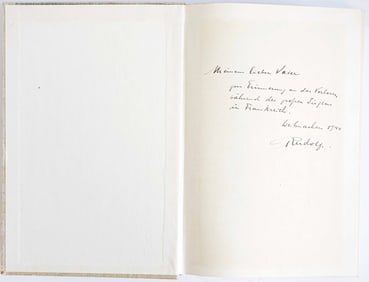 Meinem lieben Vater
zur Erinnerung an das
während des großen Sieges
in Frankreich.
Weihnachten 1940
Rudolf.